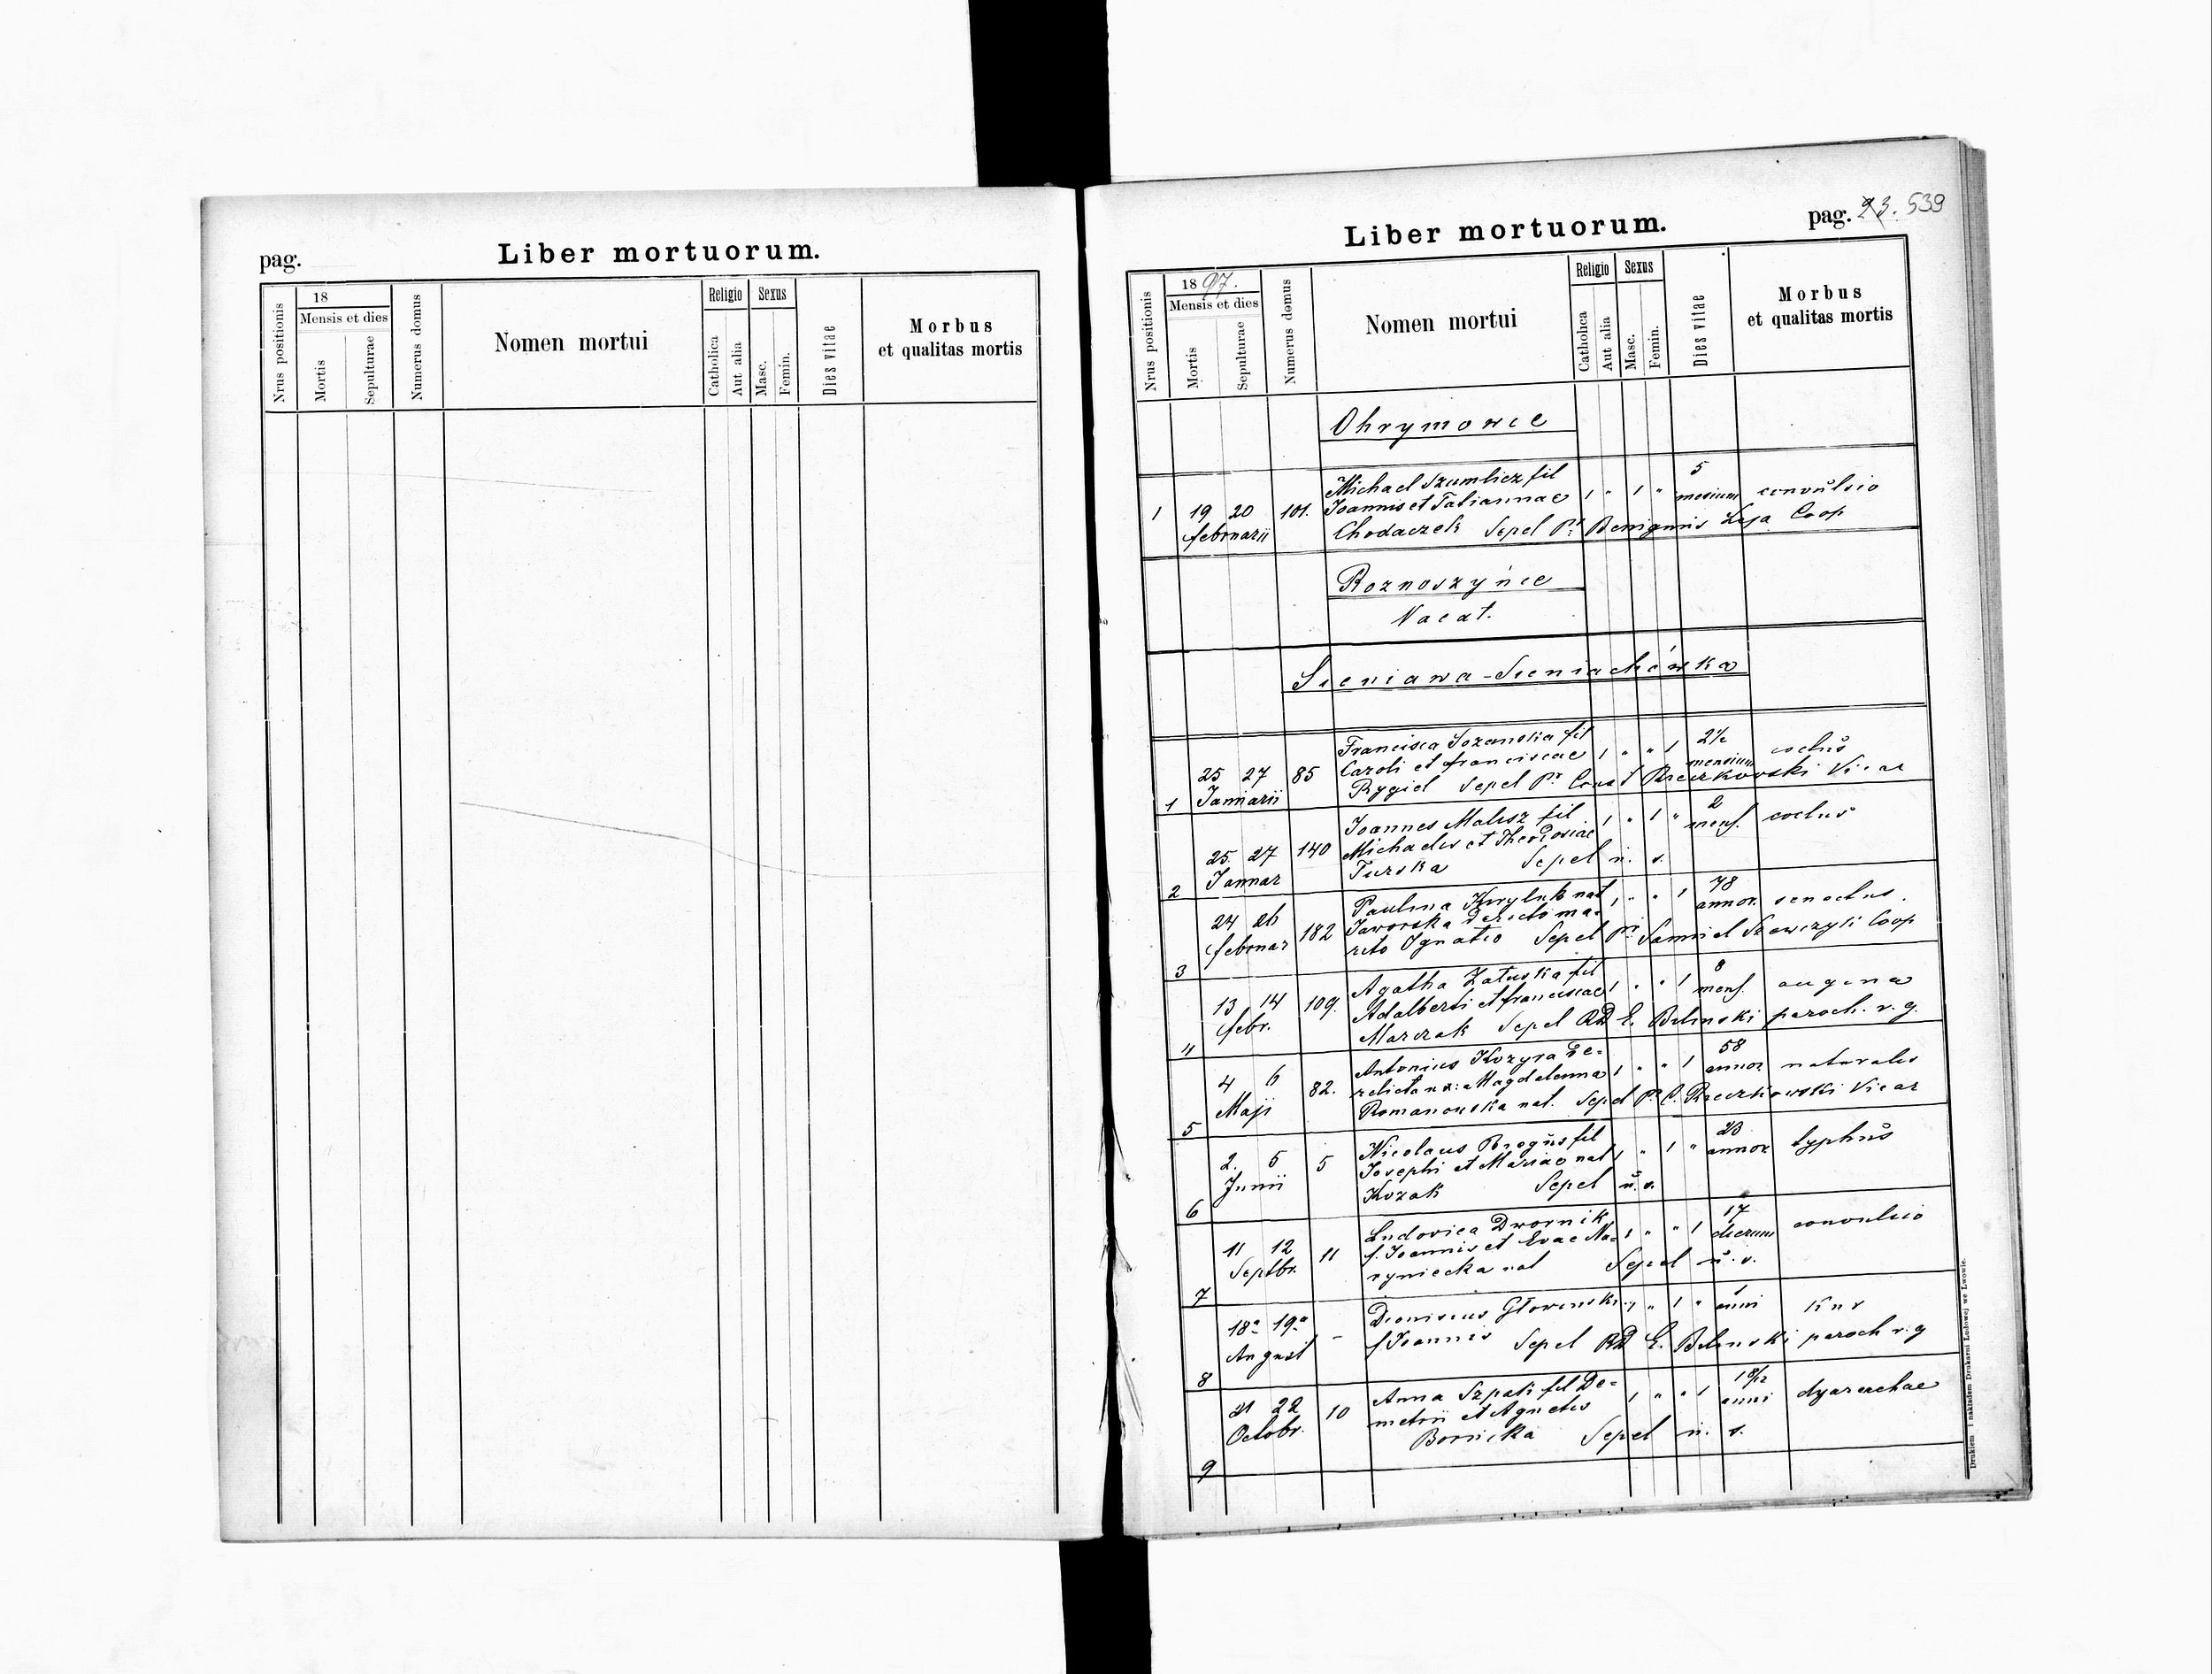 pag.
Liber mortuorum.
Nrus positionis
18
Mensis et dies
Mortis
Sepulturae
Numerus domus
Nomen mortui
Religio
Catholica
Aut alia
Sexus
Masc.
Femin.
Dies vitae
Morbus
et qualitas mortis
Liber mortuorum.
pag. 23. 539
Nrus positionis
1897.
Mensis et dies
Mortis
Sepulturae
Numerus domus
Nomen mortui
Religio
Catholica
Aut alia
Sexus
Masc.
Femin.
Dies vitae
Morbus
et qualitas mortis
Ohrymowce
Michael Szumlicz fil 5
1 19 20 101. Joannis et Tatiannae 1 " 1 " mesium convulsio
februarii Chodaczek Sepel Pr Benignus Coop
Roznoszyńce
Vacat.
Sieniawa-Sieniachówka
Francisca fil 2½
25 27 85 Caroli et franciscae 1 " " 1 mensium coctus
1 Januarii Rygiel Sepel Pr Const Reczkowski Vicar
Joannes Malisz fil 1 " 1 " 2
25 27 140 Michaelis et Theodosiae mens. coctus
2 Januar Turska Sepel u. s.
Paulina Krryluk nat 1 " " 1 78
24 26 182 Jaworska derelicto ma- annor. senectus.
3 februar rito Ignatio Sepel Pr Samuel Szewczyk Coop
Agatha Załuska fil 8
13 14 109. Adalberti et franciscae 1 " " 1 mens. angina
4 febr. Marczak Sepel RD E. Bilinski paroch. r. g.
Antonius Kozyra de- 58
4 6 82. relicta ux: Magdalenna 1 " " 1 annor naturalis
5 Maji Romanowska nat. Sepel Pr C. Reczkowski Vicar
Nicolaus fil 23
2. 5 5 Josephi et Mariae nat 1 " 1 " annor typhus
6 Junii Kozak Sepel u. s.
Ludovica Dwornik 17
11 12 11 f. Joannis et Evae Na- 1 " " 1 dierum convulsio
7 Septbr. ryniecka nat Sepel u. s.
18a 19a - Dionisius 1 " 1 " 1 anni
8 August f Joannis Sepel RD E. Bilinski paroch r. g
Anna Szpak fil De- 1 " " 1
21 22 10 metrii et Agnetis anni dyarrchae
9 Octobr. Sepel u. s.
Drukiem i nakładem Drukarni Ludowej we Lwowie.